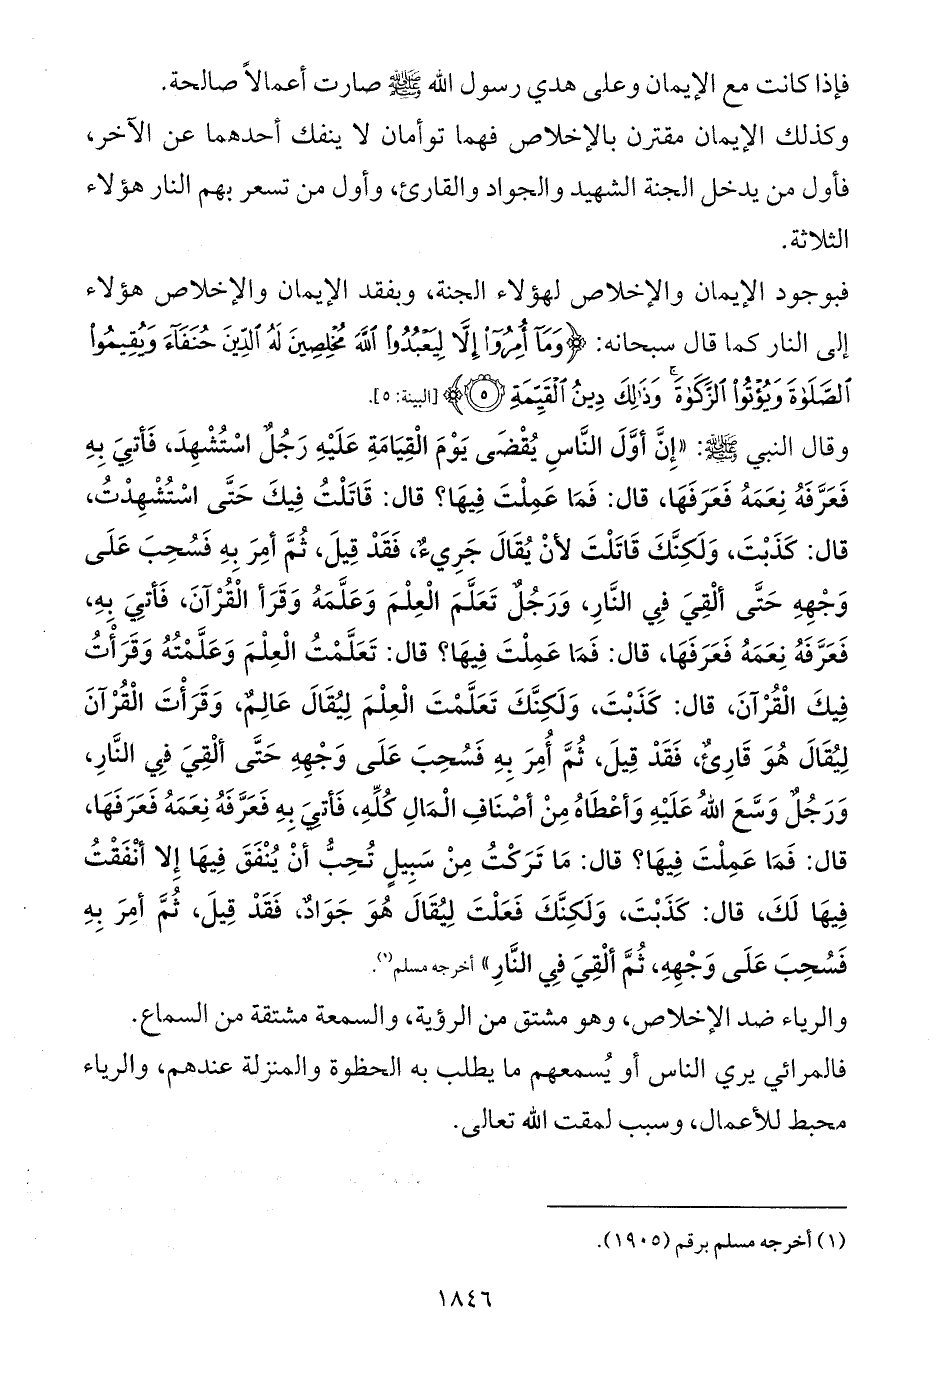 فإذا كانت مع الإيمان وعلى هدي رسول الله ﷺ صارت أعمالاً صالحة.
وكذلك الإيمان مقترن بالإخلاص فهما توأمان لا ينفك أحدهما عن الآخر،
فأول من يدخل الجنة الشهيد والجواد والقارئ، وأول من تسعر بهم النار هؤلاء
الثلاثة.
فبوجود الإيمان والإخلاص لهؤلاء الجنة، وبفقد الإيمان والإخلاص هؤلاء
إلى النار كما قال سبحانه: ﴿وَمَآ أُمِرُوٓاْ إِلَّا لِيَعۡبُدُواْ ٱللَّهَ مُخۡلِصِينَ لَهُ ٱلدِّينَ حُنَفَآءَ وَيُقِيمُواْ
ٱلصَّلَوٰةَ وَيُؤۡتُواْ ٱلزَّكَوٰةَۚ وَذَٰلِكَ دِينُ ٱلۡقَيِّمَةِ ٥﴾ [البينة: ٥].
وقال النبي ﷺ: «إِنَّ أوَّلَ النَّاسِ يُقْضَى يَوْمَ الْقِيَامَةِ عَلَيْهِ رَجُلٌ اسْتُشْهِدَ، فَأتِيَ بِهِ
فَعَرَّفَهُ نِعَمَهُ فَعَرَفَهَا، قال: فَمَا عَمِلْتَ فِيهَا؟ قال: قَاتَلْتُ فِيكَ حَتَّى اسْتُشْهِدْتُ،
قال: كَذَبْتَ، وَلَكِنَّكَ قَاتَلْتَ لأنْ يُقَالَ جَرِيءٌ، فَقَدْ قِيلَ، ثُمَّ أمِرَ بِهِ فَسُحِبَ عَلَى
وَجْهِهِ حَتَّى ألْقِيَ فِي النَّارِ، وَرَجُلٌ تَعَلَّمَ الْعِلْمَ وَعَلَّمَهُ وَقَرَأ الْقُرْآنَ، فَأتِيَ بِهِ،
فَعَرَّفَهُ نِعَمَهُ فَعَرَفَهَا، قال: فَمَا عَمِلْتَ فِيهَا؟ قال: تَعَلَّمْتُ الْعِلْمَ وَعَلَّمْتُهُ وَقَرَأْتُ
فِيكَ الْقُرْآنَ، قال: كَذَبْتَ، وَلَكِنَّكَ تَعَلَّمْتَ الْعِلْمَ لِيُقَالَ عَالِمٌ، وَقَرَأْتَ الْقُرْآنَ
لِيُقَالَ هُوَ قَارِئٌ، فَقَدْ قِيلَ، ثُمَّ أُمِرَ بِهِ فَسُحِبَ عَلَى وَجْهِهِ حَتَّى ألْقِيَ فِي النَّارِ،
وَرَجُلٌ وَسَّعَ اللهُ عَلَيْهِ وَأعْطَاهُ مِنْ أصْنَافِ الْمَالِ كُلِّهِ، فَأتِيَ بِهِ فَعَرَّفَهُ نِعَمَهُ فَعَرَفَهَا،
قال: فَمَا عَمِلْتَ فِيهَا؟ قال: مَا تَرَكْتُ مِنْ سَبِيلٍ تُحِبُّ أنْ يُنْفَقَ فِيهَا إِلا أنْفَقْتُ
فِيهَا لَكَ، قال: كَذَبْتَ، وَلَكِنَّكَ فَعَلْتَ لِيُقَالَ هُوَ جَوَادٌ، فَقَدْ قِيلَ، ثُمَّ أمِرَ بِهِ
فَسُحِبَ عَلَى وَجْهِهِ، ثُمَّ ألْقِيَ فِي النَّارِ» أخرجه مسلم(١).
والرياء ضد الإخلاص، وهو مشتق من الرؤية، والسمعة مشتقة من السماع.
فالمرائي يري الناس أو يُسمعهم ما يطلب به الحظوة والمنزلة عندهم، والرياء
محبط للأعمال، وسبب لمقت الله تعالى.
(١) أخرجه مسلم برقم (١٩٠٥).
١٨٤٦